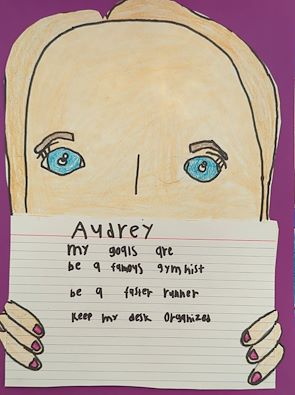 Audrey
my goals are
be a famous gymnist
be a faster runner
keep my desk organized